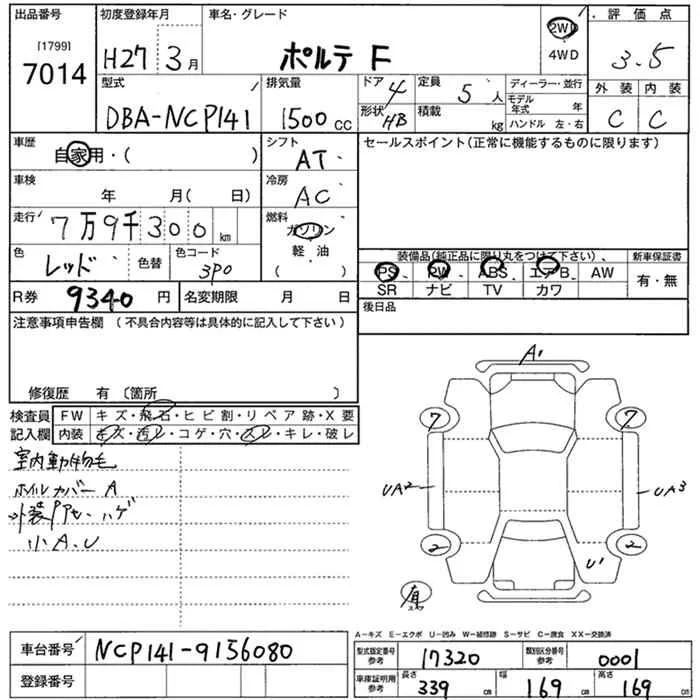 出品番号 初度登録年月 車名・グレード 2WD 評価点
[1799] 7014 H27 3月 ポルテ F 4WD 3.5
型式 排気量 ドア 4 定員 5人 ディーラー・並行 外装 内装
DBA-NCP141 1500cc 形状 HB 積載 kg モデル年式 年 C C
ハンドル 左・右
車歴 自家用・( ) シフト AT セールスポイント(正常に機能するものに限ります)
車検 年 月( 日) 冷房 AC
走行 7万9千300km 燃料 ガソリン
軽・油
色 レッド 色替 色コード 3P0 装備品(純正品に限り丸をつけて下さい)、 新車保証書
PS PW ABS エアB AW 有・無
SR ナビ TV カワ
R券 9340円 名変期限 月 日 後日品
注意事項申告欄 (不具合内容等は具体的に記入して下さい)
修復歴 有 〔箇所 〕
検査員 FW キズ・飛石・ヒビ割・リペア跡・X要
記入欄 内装 キズ・汚レ・コゲ・穴・スレ・キレ・破レ
室内動物毛
ホイルカバー A
外装 ハゲ
小A.U
A1
7 7
UA2 UA3
2 2
U1
有
A-キズ E-エクボ U-凹み W-補修跡 S-サビ C-腐食 XX-交換済
車台番号 NCP141-9156080 型式指定番号 参考 17320 類別区分番号 参考 0001
登録番号 車庫証明用 参考 長さ 339cm 幅 169cm 高さ 169cm